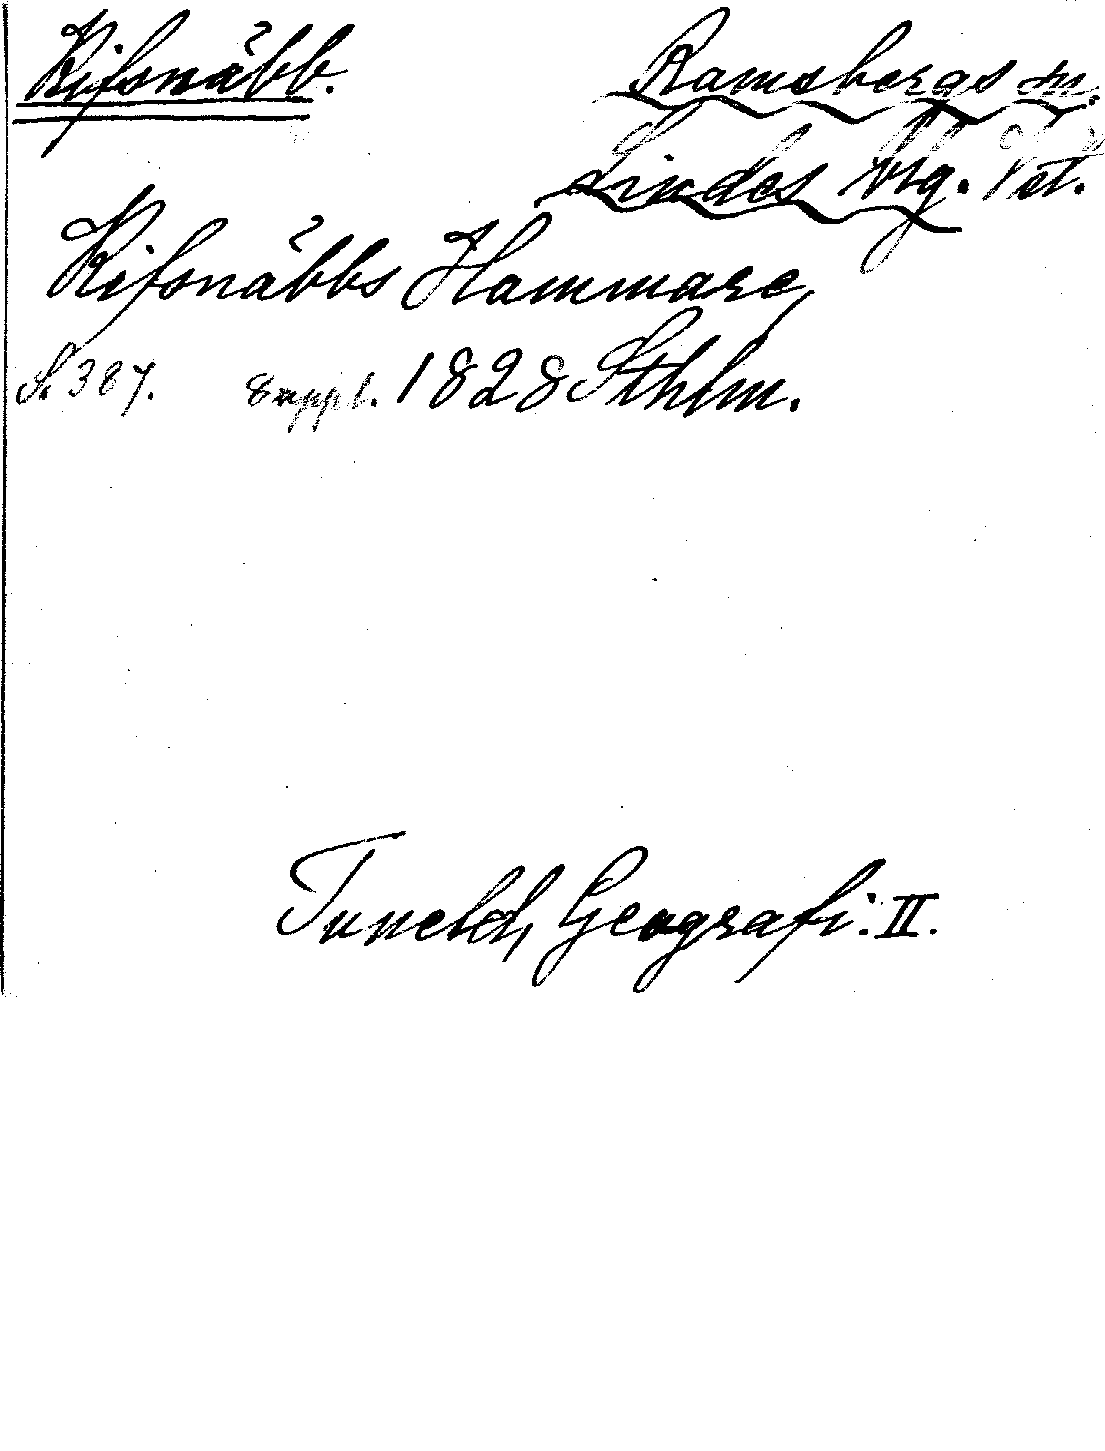 Kifsnäbb.
Ramsbergs sn.
Lindes btg. Vst.
Kifsnäbbs Hammare,
S. 387. Suppl. 1828 Sthlm.
Tuneld, Geografi. II.